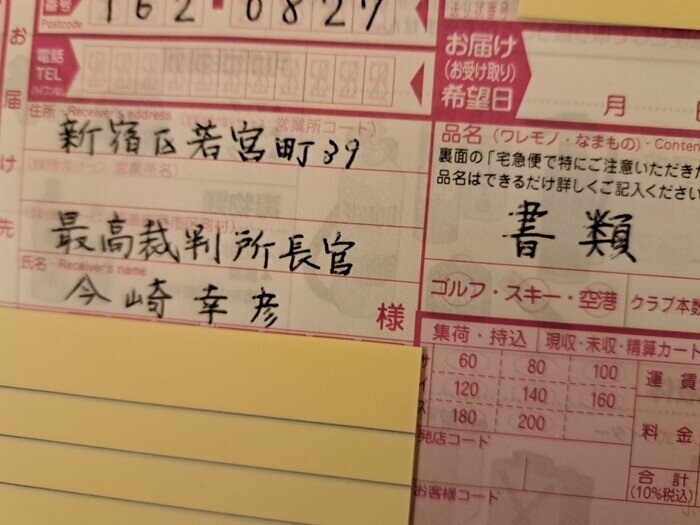 番号
Postcode
162 0827
お届け先
電話
TEL
住所・Receiver's address
営業所コード)
新宿区若宮町39
最高裁判所長官
氏名・Receiver's name
今崎幸彦
様
お届け
(お受け取り)
希望日
月
品名(ワレモノ・なまもの)・Conten
裏面の「宅急便で特にご注意いただきた
品名はできるだけ詳しくご記入ください
書類
ゴルフ・スキー・空港
クラブ本数
集荷・持込
現収・未収・精算カート
サイズ
60 80 100
120 140 160
180 200
運賃
料金
合計
(10%税込)
発店コード
お客様コード